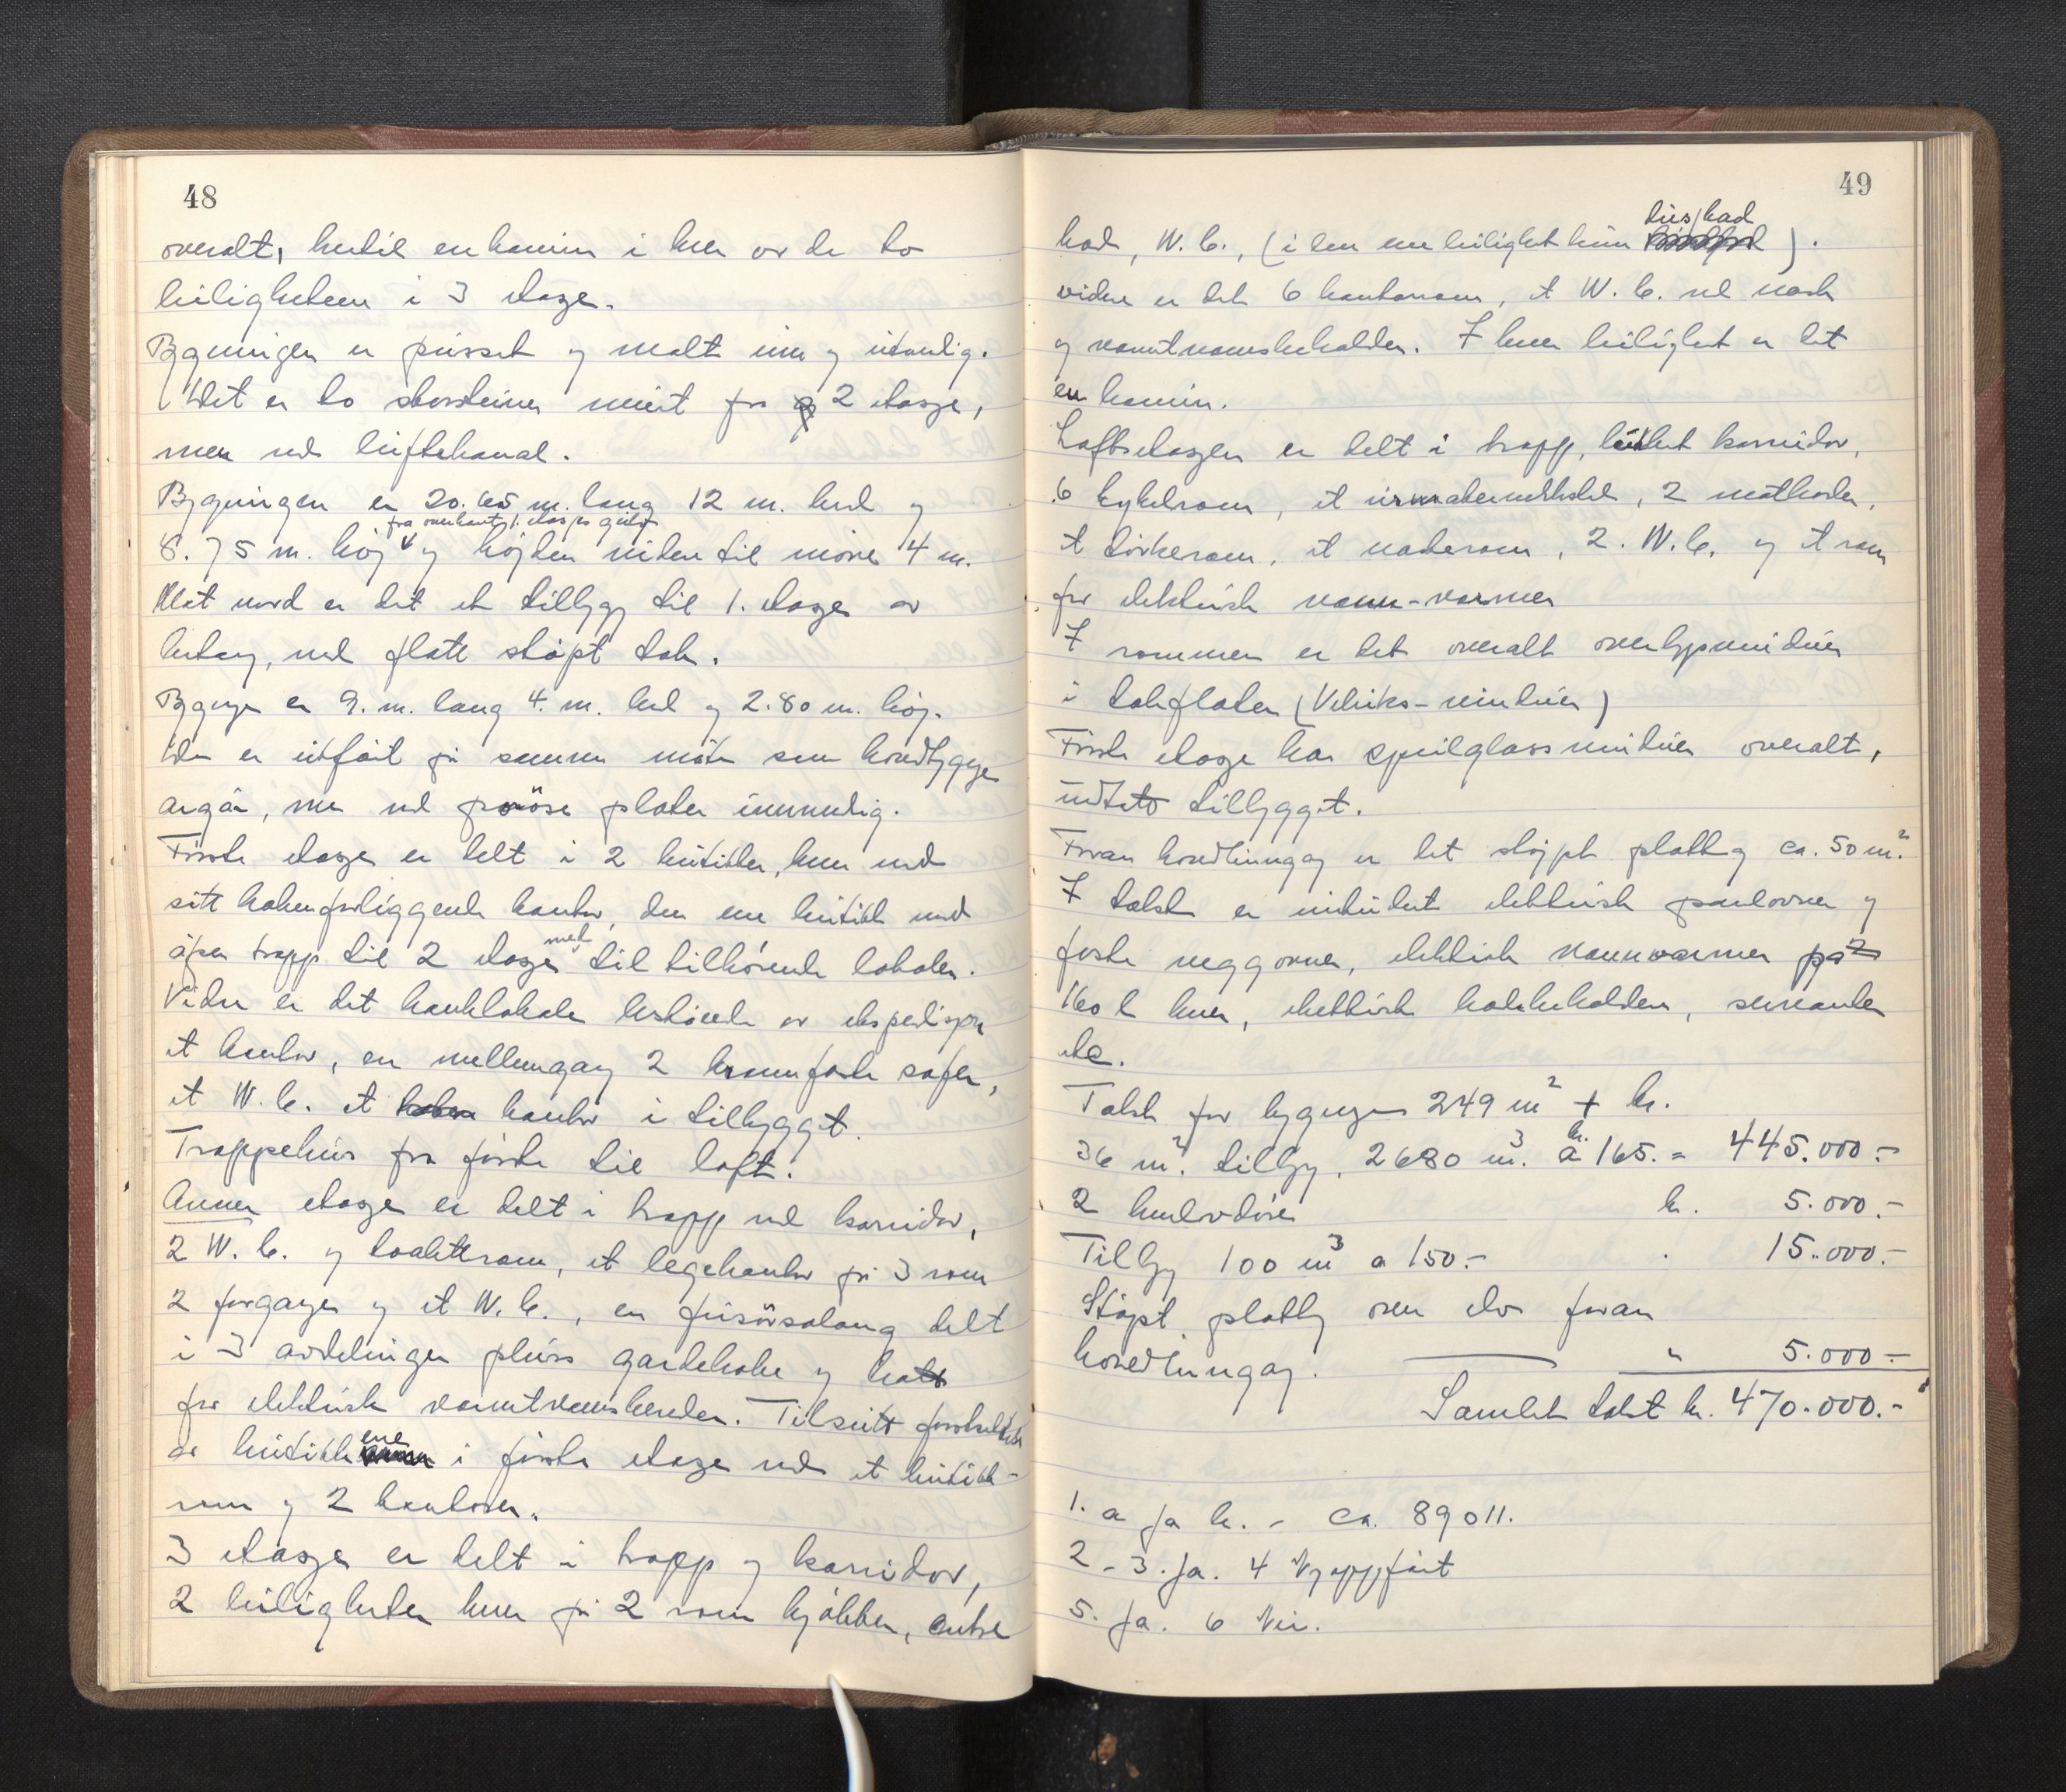 48
overalt, hertil en kamin i hver av de to
leiligheter i 3 etage.
Bygningen er pusset og malt inn og utvendig.
Det er to skorsteiner murt fra 2 etasje,
men med luftekanal.
Bygningen er 20.65 m. lang 12 m. bred og
fra overkant 1. etasjes gulv
8.75 m. høj og højden videre til møne 4 m.
Mot nord er det et tilbygg til 1. etage av
betong, med flatt støpt tak.
Bygnigen er 9. m. lang 4. m. bred og 2.80 m. høj.
Den er utført på samme måte som hovedbygnigen
angår, men med porøse plater innvendig.
Første etage er delt i 2 butikker, hver med
sitt bakenforliggende kontor, den ene butikk med
åpen trapp til 2 etage med til tilhørende lokaler.
Videre er det banklokale bestående av ekspedisjon
et kontor, en mellemgang 2 brannfaste safer,
et W.C. et kontor i tilbygget.
Trappehus fra første til loft.
Annen etage er delt i trapp med korridor,
2 W.C. og toalettrom, et legekontor på 3 rom
2 forganger og et W.C., en frisørsalong delt
i 3 avdelinger pluss garderobe og kott
for elektrisk varmtvannsbereder. Tilslutt fortsettelse
av butikkene i første etage med et butikk-
rom og 2 kontorer.
3 etasje er delt i trapp og korridor,
2 leiligheter hver på 2 rom kjøkken, entre
49
dusjbad
bad, W.C., (i den ene leilighet kun ).
videre er det 6 kontorrom, et W.C. med vask
og varmtvannsbeholder. I hver leilighet er det
en kamin.
Loftsetasjen er delt i trapp, lukket korridor,
6 kykelrom, et urmakerverksted, 2 matboder,
et tørkerom, et vaskerom, 2. W.C. og et rom
for elektrisk vann-varmer
I rommen er det overalt overlysvinduer
i takflaten (Veluks-vinduer)
Første etage har speilglassvinduer overalt,
undtatt tilbygget.
Foran hovedinngang er det støpt platting ca. 50 m².
I takst er inkludert elektrisk panelovner og
faste veggovner, elektrisk vannvarmer på 2
160 l hver, elektrisk badebeholder, servanter
etc.
Takst for bygnigen 249 m² + kr.
36 m². tilbyg, 2680 m³. a kr. 165. = 445.000.-
2 hvelvdører kr. 5.000.-
Tilbyg 100 m³ a 150.- 15.000.-
Støpt platting over elv foran
hovedinngang. " 5.000.-
Samlet takst kr. 470.000.-
1. a ja b. - ca. 89 011.
2 - 3. ja. 4 Nyoppført
5. ja. 6 Nei.